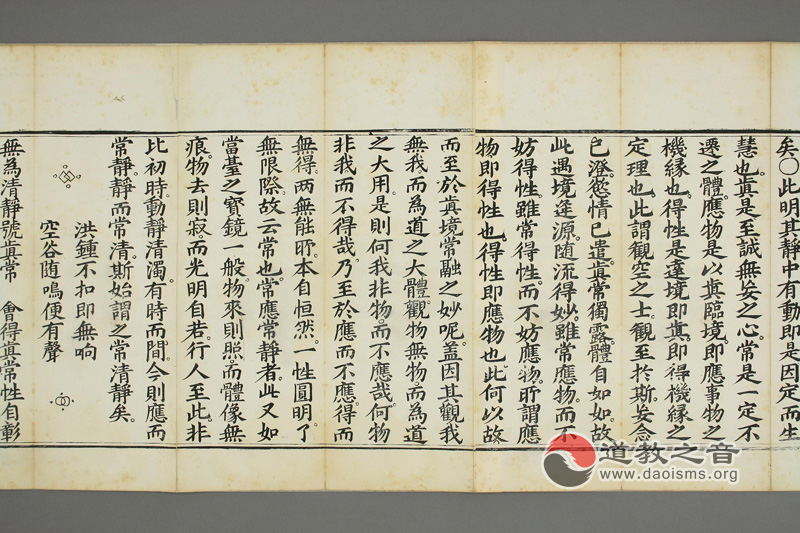 矣○此明其靜中有動即是因定而生
慧也真是至誠無妄之心常是一定不
遷之體應物是以真臨境即應事物之
機緣也得性是達境即真即得機緣之
定理也此謂觀空之士觀至於斯妄念
已澄慾情已遣真常獨露體自如如故
此遇境逢源随流得妙雖常應物而不
妨得性雖常得性而不妨應物所謂應
物即得性也得性即應物也此何以故
而至於真境常融之妙呢蓋因其觀我
無我而為道之大體觀物無物而為道
之大用是則何我非物而不應哉何物
非我而不得哉乃至於應而不應得而
無得两無能所本自恒然一性圓明了
無限際故云常也常應常靜者此又如
當臺之寶鏡一般物來則照而體像無
痕物去則寂而光明自若行人至此非
比初時動靜清濁有時而間今則應而
常靜靜而常清斯始謂之常清靜矣
洪鍾不扣即無响
空谷随鳴便有聲
無為清靜號真常 會得真常性自彰
道教之音
www.daoisms.org